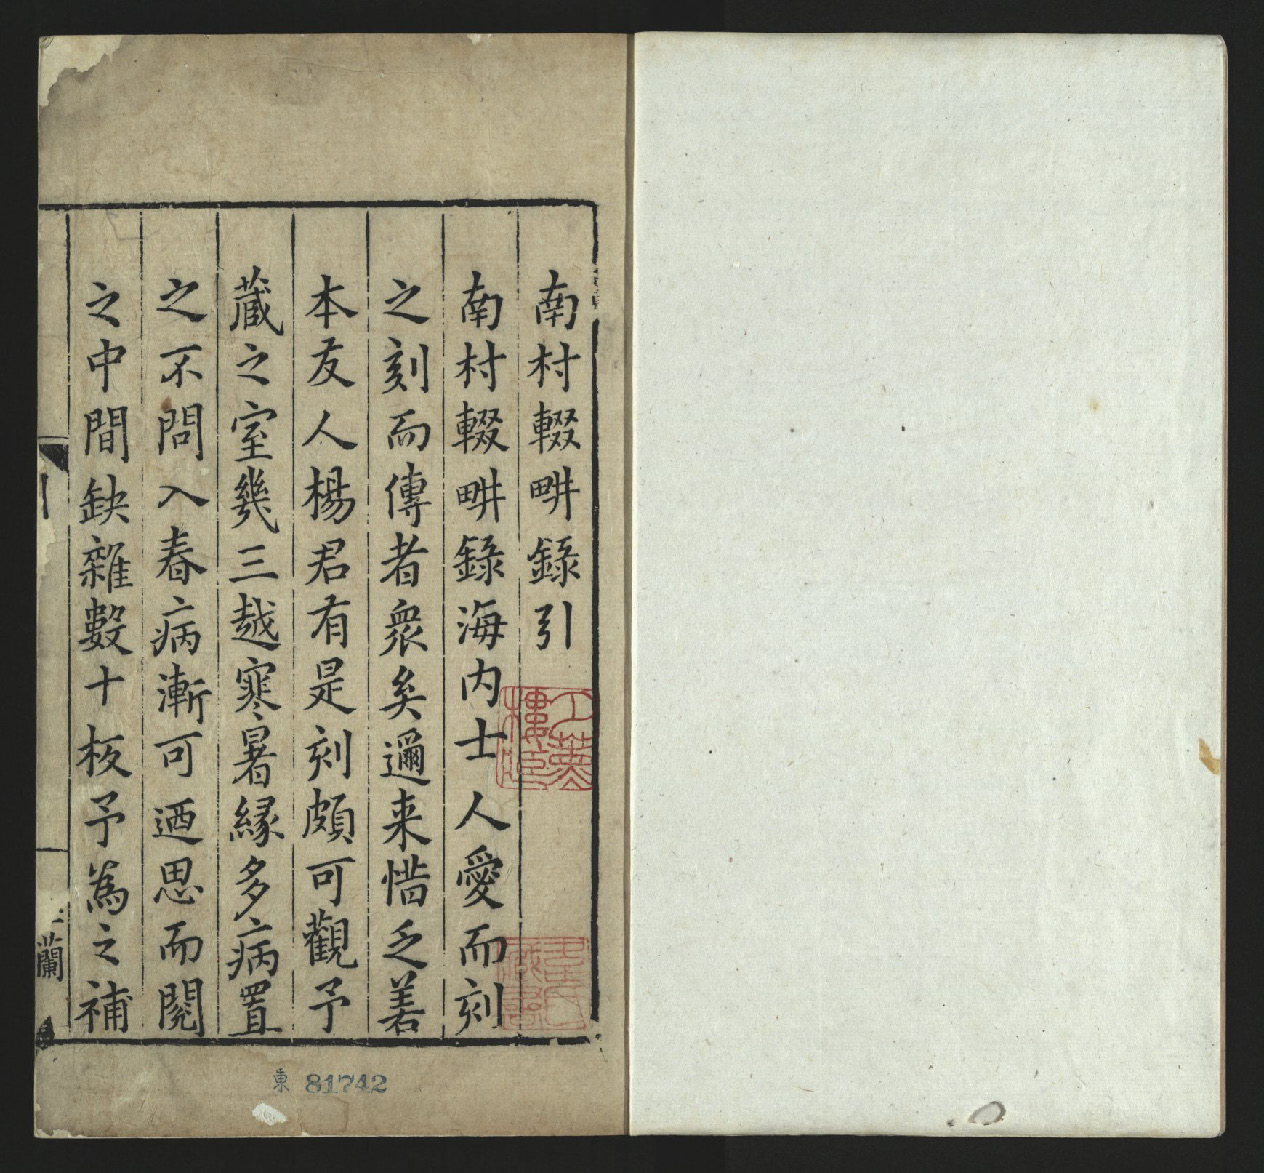 南村輟畊錄引
南村輟畊錄海內士人愛而刻
之刻而傳者衆矣邇来惜乏善
本友人楊君有是刻頗可觀予
蔵之室幾三越寒暑緣多病置
之不問入春病漸可迺思而閱
之中間缺雜數十板予為之補
引
蘭
東 81742